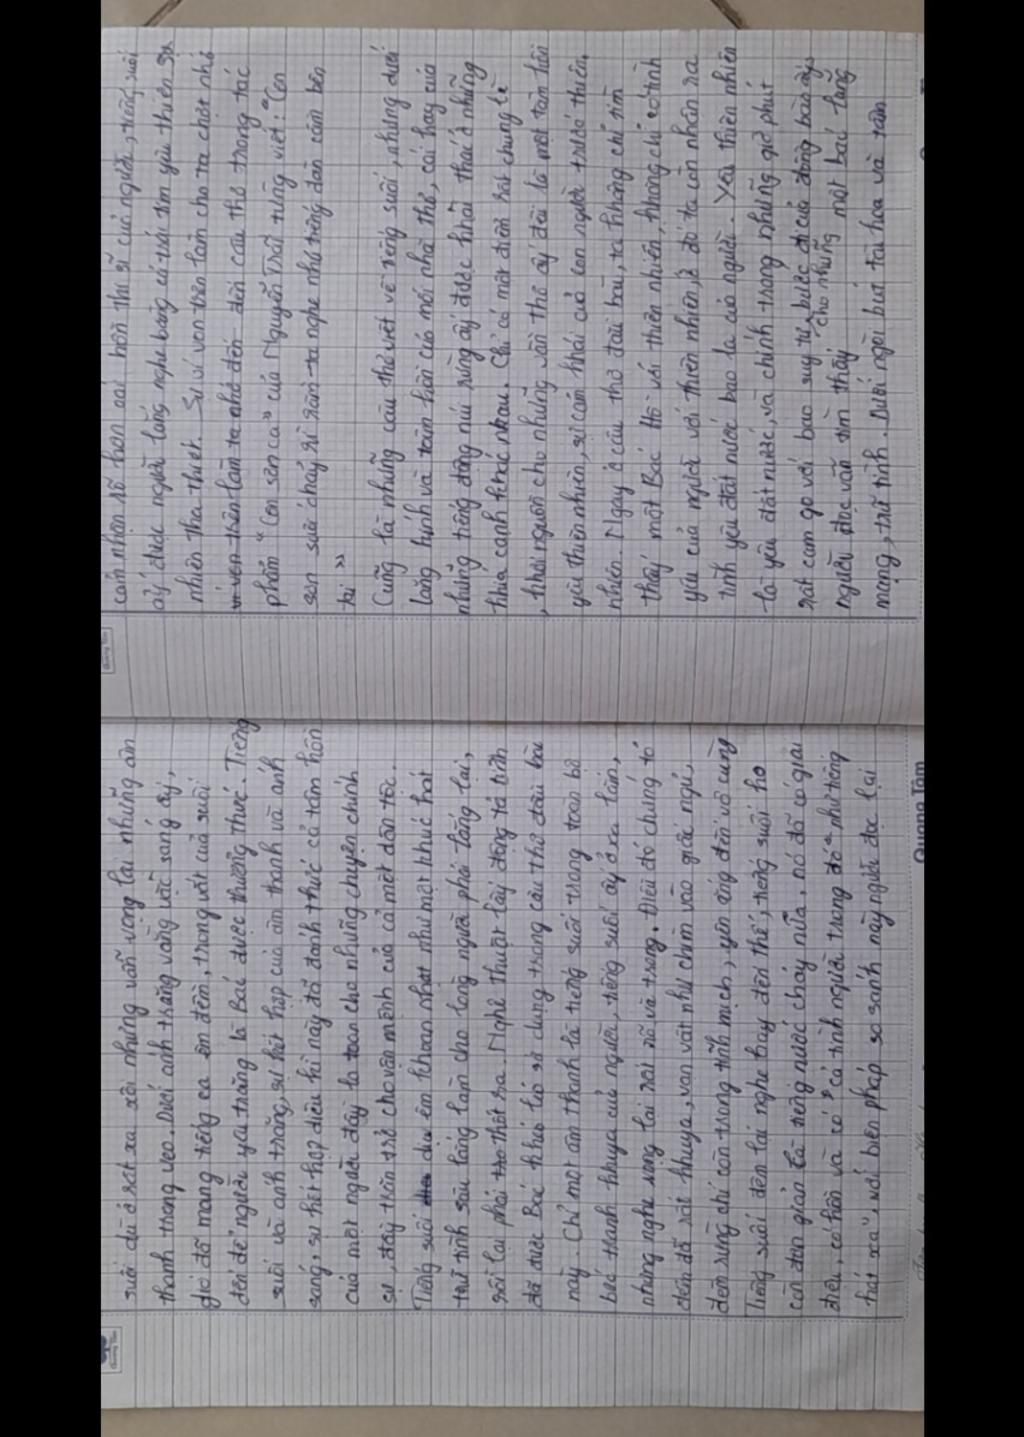 suối dù ở rất xa xôi nhưng vẫn vọng lại những âm
thanh trong veo. Dưới ánh trăng vằng vặc sáng ấy,
gió đã mang tiếng ca êm đềm, trong vắt của suối
đến để người yêu trăng là Bác được thưởng thức. Tiếng
suối và ánh trăng, sự kết hợp của âm thanh và ánh
sáng, sự kết hợp diệu kì này đã đánh thức cả tâm hồn
của một người đầy lo toan cho những chuyện chính
sự, đầy trăn trở cho vận mệnh của cả một dân tộc.
Tiếng suối dịu êm khoan nhặt như một khúc hát
trữ tình sâu lắng làm cho lòng người phải lắng lại,
rồi lại phải thốt ra. Nghệ thuật lấy động tả tĩnh
đã được Bác khéo léo sử dụng trong câu thơ đầu bài
này. Chỉ một âm thanh là tiếng suối trong toàn bộ
bức tranh khuya của người, tiếng suối ấy ở xa lắm,
nhưng nghe vọng lại rất rõ và trong. Điều đó chứng tỏ
đêm đã rất khuya, vạn vật như chìm vào giấc ngủ,
đêm rừng chỉ còn trong tĩnh mịch, yên ắng đến vô cùng
Tiếng suối đêm lại nghe hay đến thế, tiếng suối ko
còn đơn giản là tiếng nước chảy nữa, nó đã có giai
điệu, có hồn và có cả tình người trong đó "như tiếng
hát xa", với biện pháp so sánh này người đọc lại
cảm nhận rõ hơn cái hồn thi sĩ của người, tiếng suối
ấy được người lắng nghe bằng cả trái tim yêu thiên
nhiên tha thiết. Sự ví von trên làm cho ta chợt nhớ
đến câu thơ trong tác
phẩm "Côn sơn ca" của Nguyễn Trãi từng viết: "Côn
sơn suối chảy rì rầm - ta nghe như tiếng đàn cầm bên
tai"
Cũng là những câu thơ viết về tiếng suối, nhưng dưới
lăng kính và tâm hồn của mỗi nhà thơ, cái hay của
những tiếng động núi rừng ấy được khai thác ở những
khía cạnh khác nhau. Chỉ có một điểm rất chung là
, khơi nguồn cho những vần thơ ấy đều là một tâm hồn
yêu thiên nhiên, sự cảm khái của con người trước thiên
nhiên. Ngay ở câu thơ đầu bài, ta không chỉ tìm
thấy một Bác Hồ với thiên nhiên, không chỉ có tình
yêu của người với thiên nhiên, ở đó ta còn nhận ra
tình yêu đất nước bao la của người. Yêu thiên nhiên
là yêu đất nước, và chính trong những giờ phút
rất cam go với bao suy tư cho những bước đi của dân tộc ấy,
người đọc vẫn tìm thấy một bác lãng
mạng, trữ tình. Dưới ngòi bút tài hoa và tâm